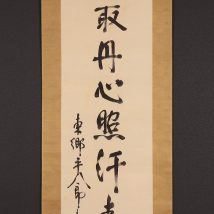 取丹心照汗青
東郷平八郎